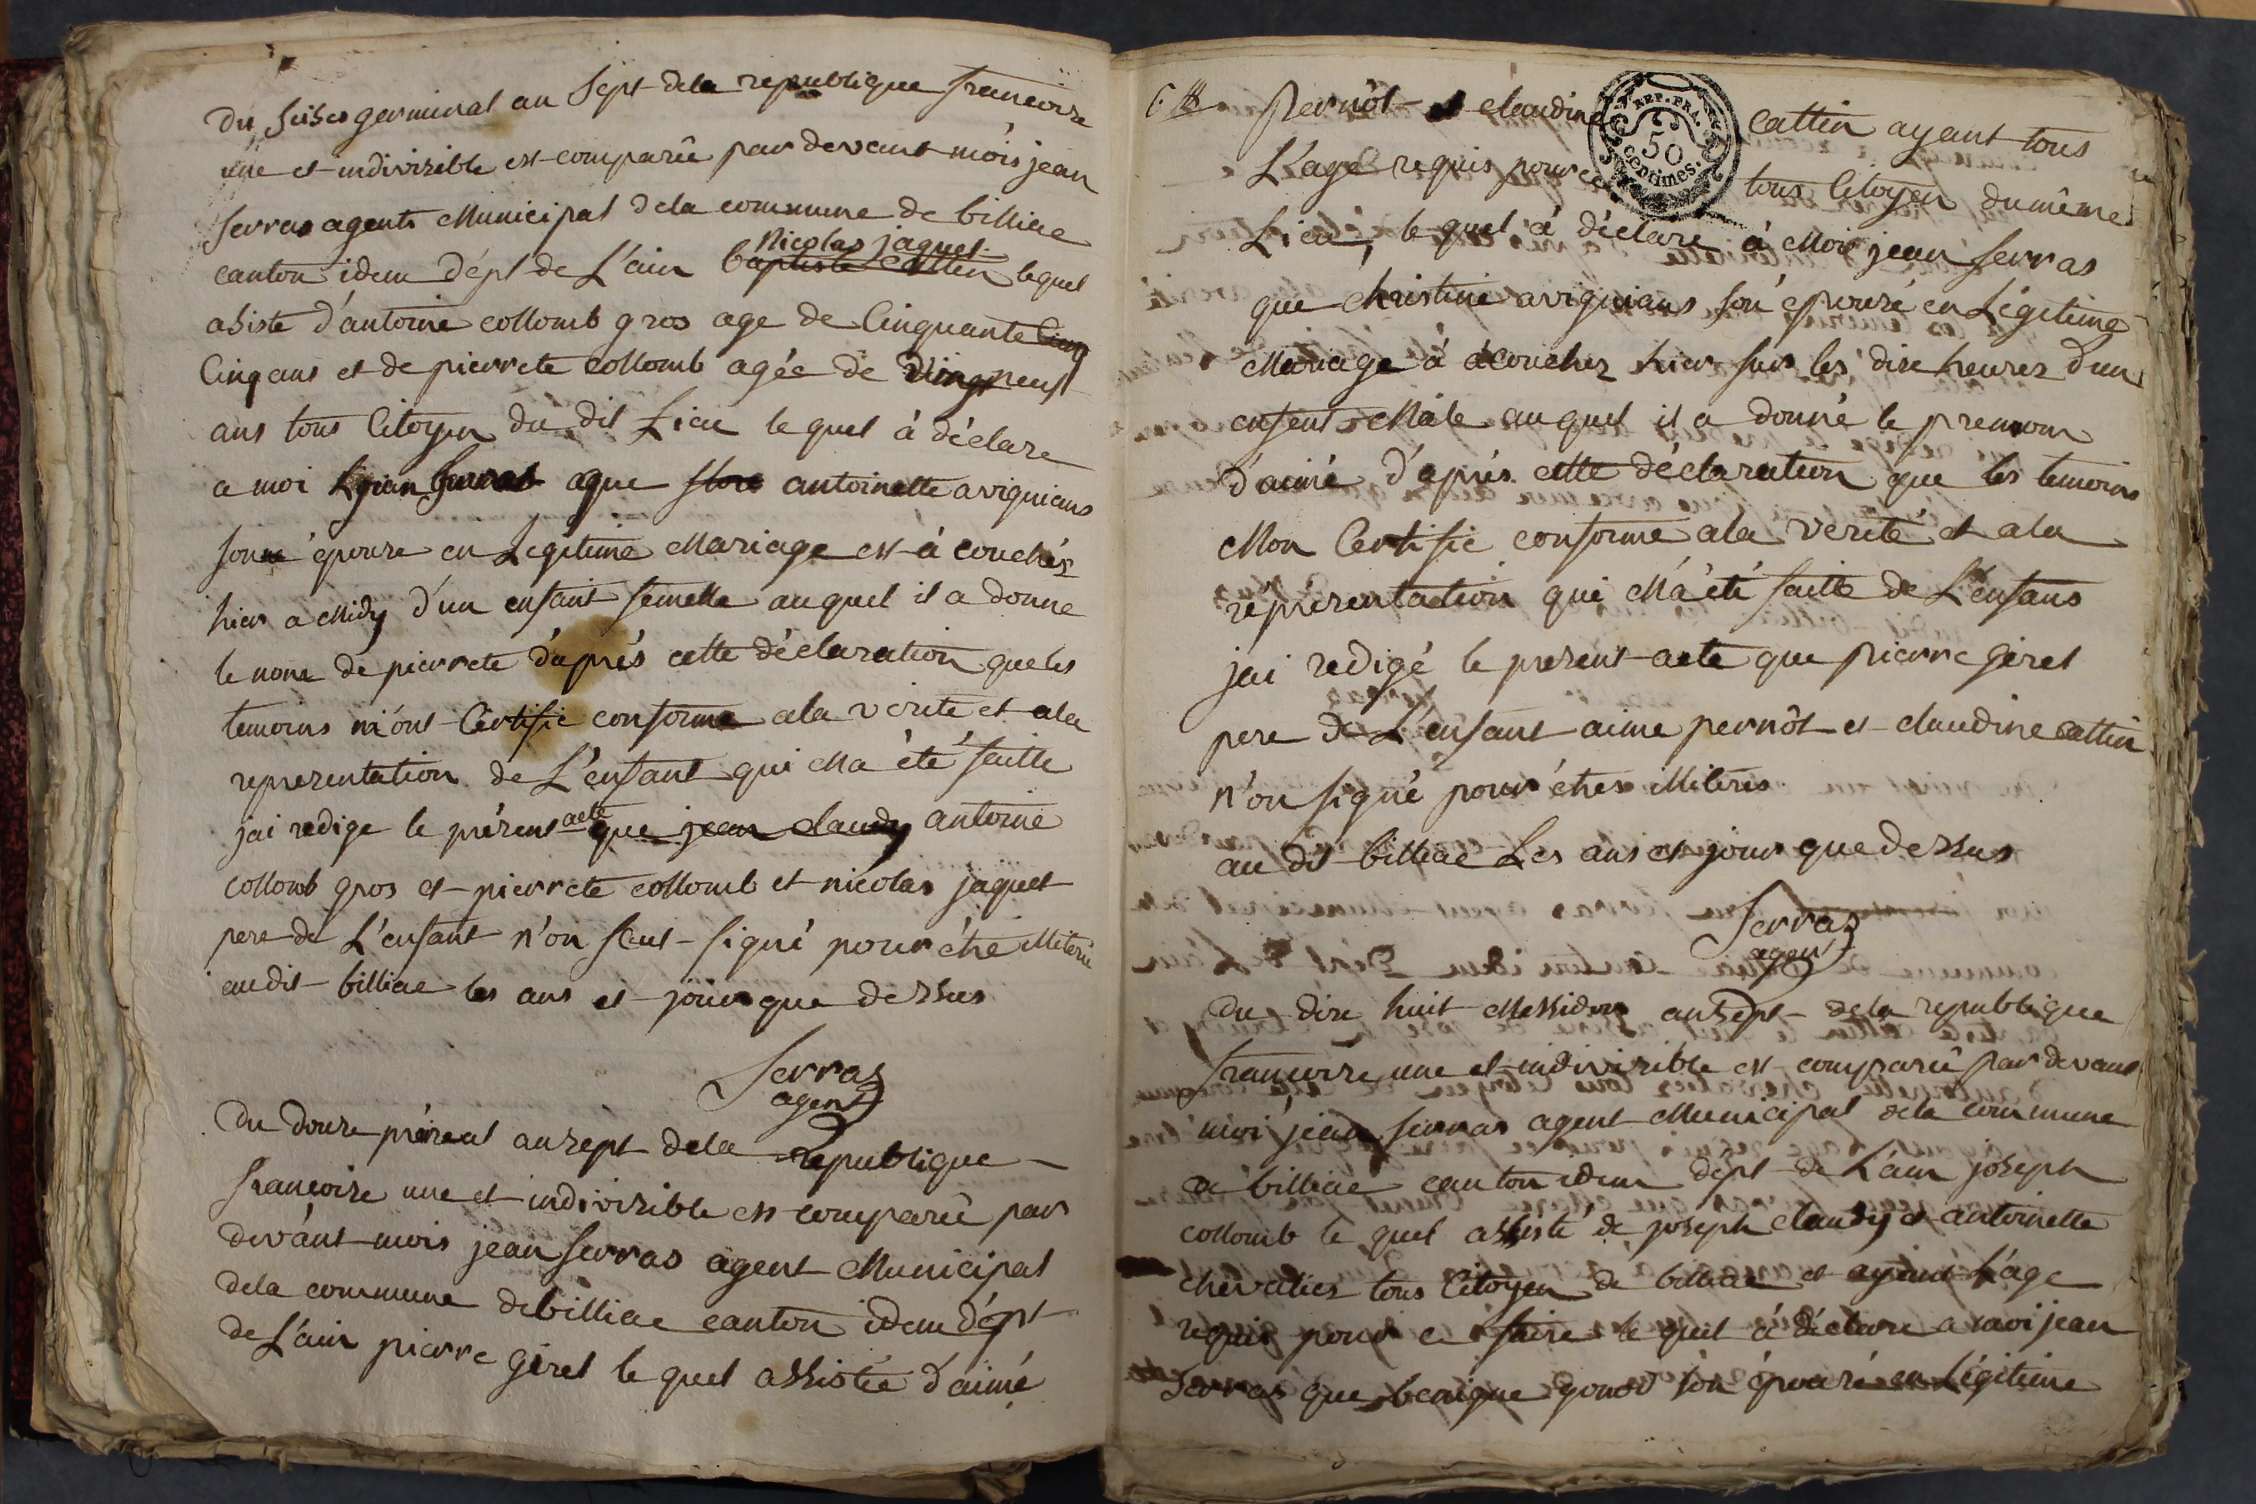 Du seise germinal an sept de la republique francoise
une et indivizible est comparû par devant mois jean
serras agent Municipal de la commune de billiac
canton idem dépt de L'ain baptiste cattin Nicolas jaquet lequel
asiste d'antoine collomb gros age de Cinquante Cinq
Cinq ans et de pierrete collomb agée de vingt neuf
ans tous Citoyen du dit Lieu le quel à déclare
a moi jean serras que antoinette avignians
sonne épouze en Légitime Mariage est à couchéz
hier a Midy d'un enfant femelle au quel il a donne
le nome de pierrete d'après cette déclaration que les
temoins m'ont Certifie conforme a la verite et a la
reprezentation de L'enfant qui Ma été faitte
jai redige le prézent acte que jean claudy antoine
collomb gros et pierrete collomb et nicolas jaquet
pere de L'enfant n'on seut signé pour étre Miterie
au dit billiac les ans et jour que dessus
Serras
agent
Du douze préreal an sept de la republique
francoize une et indivizible est comparû par
devant mois jean serras agent Municipal
de la commune de billiac canton idem dépt
de L'ain pierre géret le quel assistée d'aimé
pernôt et claudine cattin ayant tous
REP. FR.
50
centimes
L'age requis pour ce tous Citoyen du même
Lieu, le quel à déclare à Moi jean serras
que christine avignians son épouzé en Légitime
Mariage à acouchez hier sur les dix heures d'un
enfent Mâle au quel il a donné le prenom
d'aimé d'aprés cette déclaration que les temoins
Mon Certifie conforme a la verité et a la
réprezentation qui Ma été faitte de L'enfans
jai redigé le prezent acte que pierre géret
pere de L'enfant aime pernôt et claudine cattin
n'on signé pour étres Miterés
au dit billiac Les ans et jour que dessus
Serras
agent
du dix huit Messidor an sept de la republique
francoize une et indivizible est comparû par devant
moi jean serras agent Municipal de la commune
de billiac canton idem dépt de L'ain joseph
collomb le quel assisté de joseph claudy et antoinette
chevalier tous Citoyen de billiac et ayant L'age
requis pour ce faire le quel à déclare a moi jean
Serras que benigne gonod son épouzé en Légitime